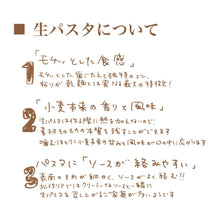 ■ 生パスタについて
1 「モチッとした食感」
モチッとした歯ごたえと独特のコシ、
粘りが乾麺とは異なる最大の特徴！
2 「小麦本来の香りと風味」
生パスタは作る際に熱を加えないので、
素材そのものの本質を残すことができます
噛むほどに小麦本来の甘みと風味が口の中に広がります
3 パスタに「ソースが絡みやすい」
表面のきめが細かく、ソースがよく絡む!!
北イタリアではクリーミーなソースと一緒に
生パスタを召し上がるご家庭が多いようです